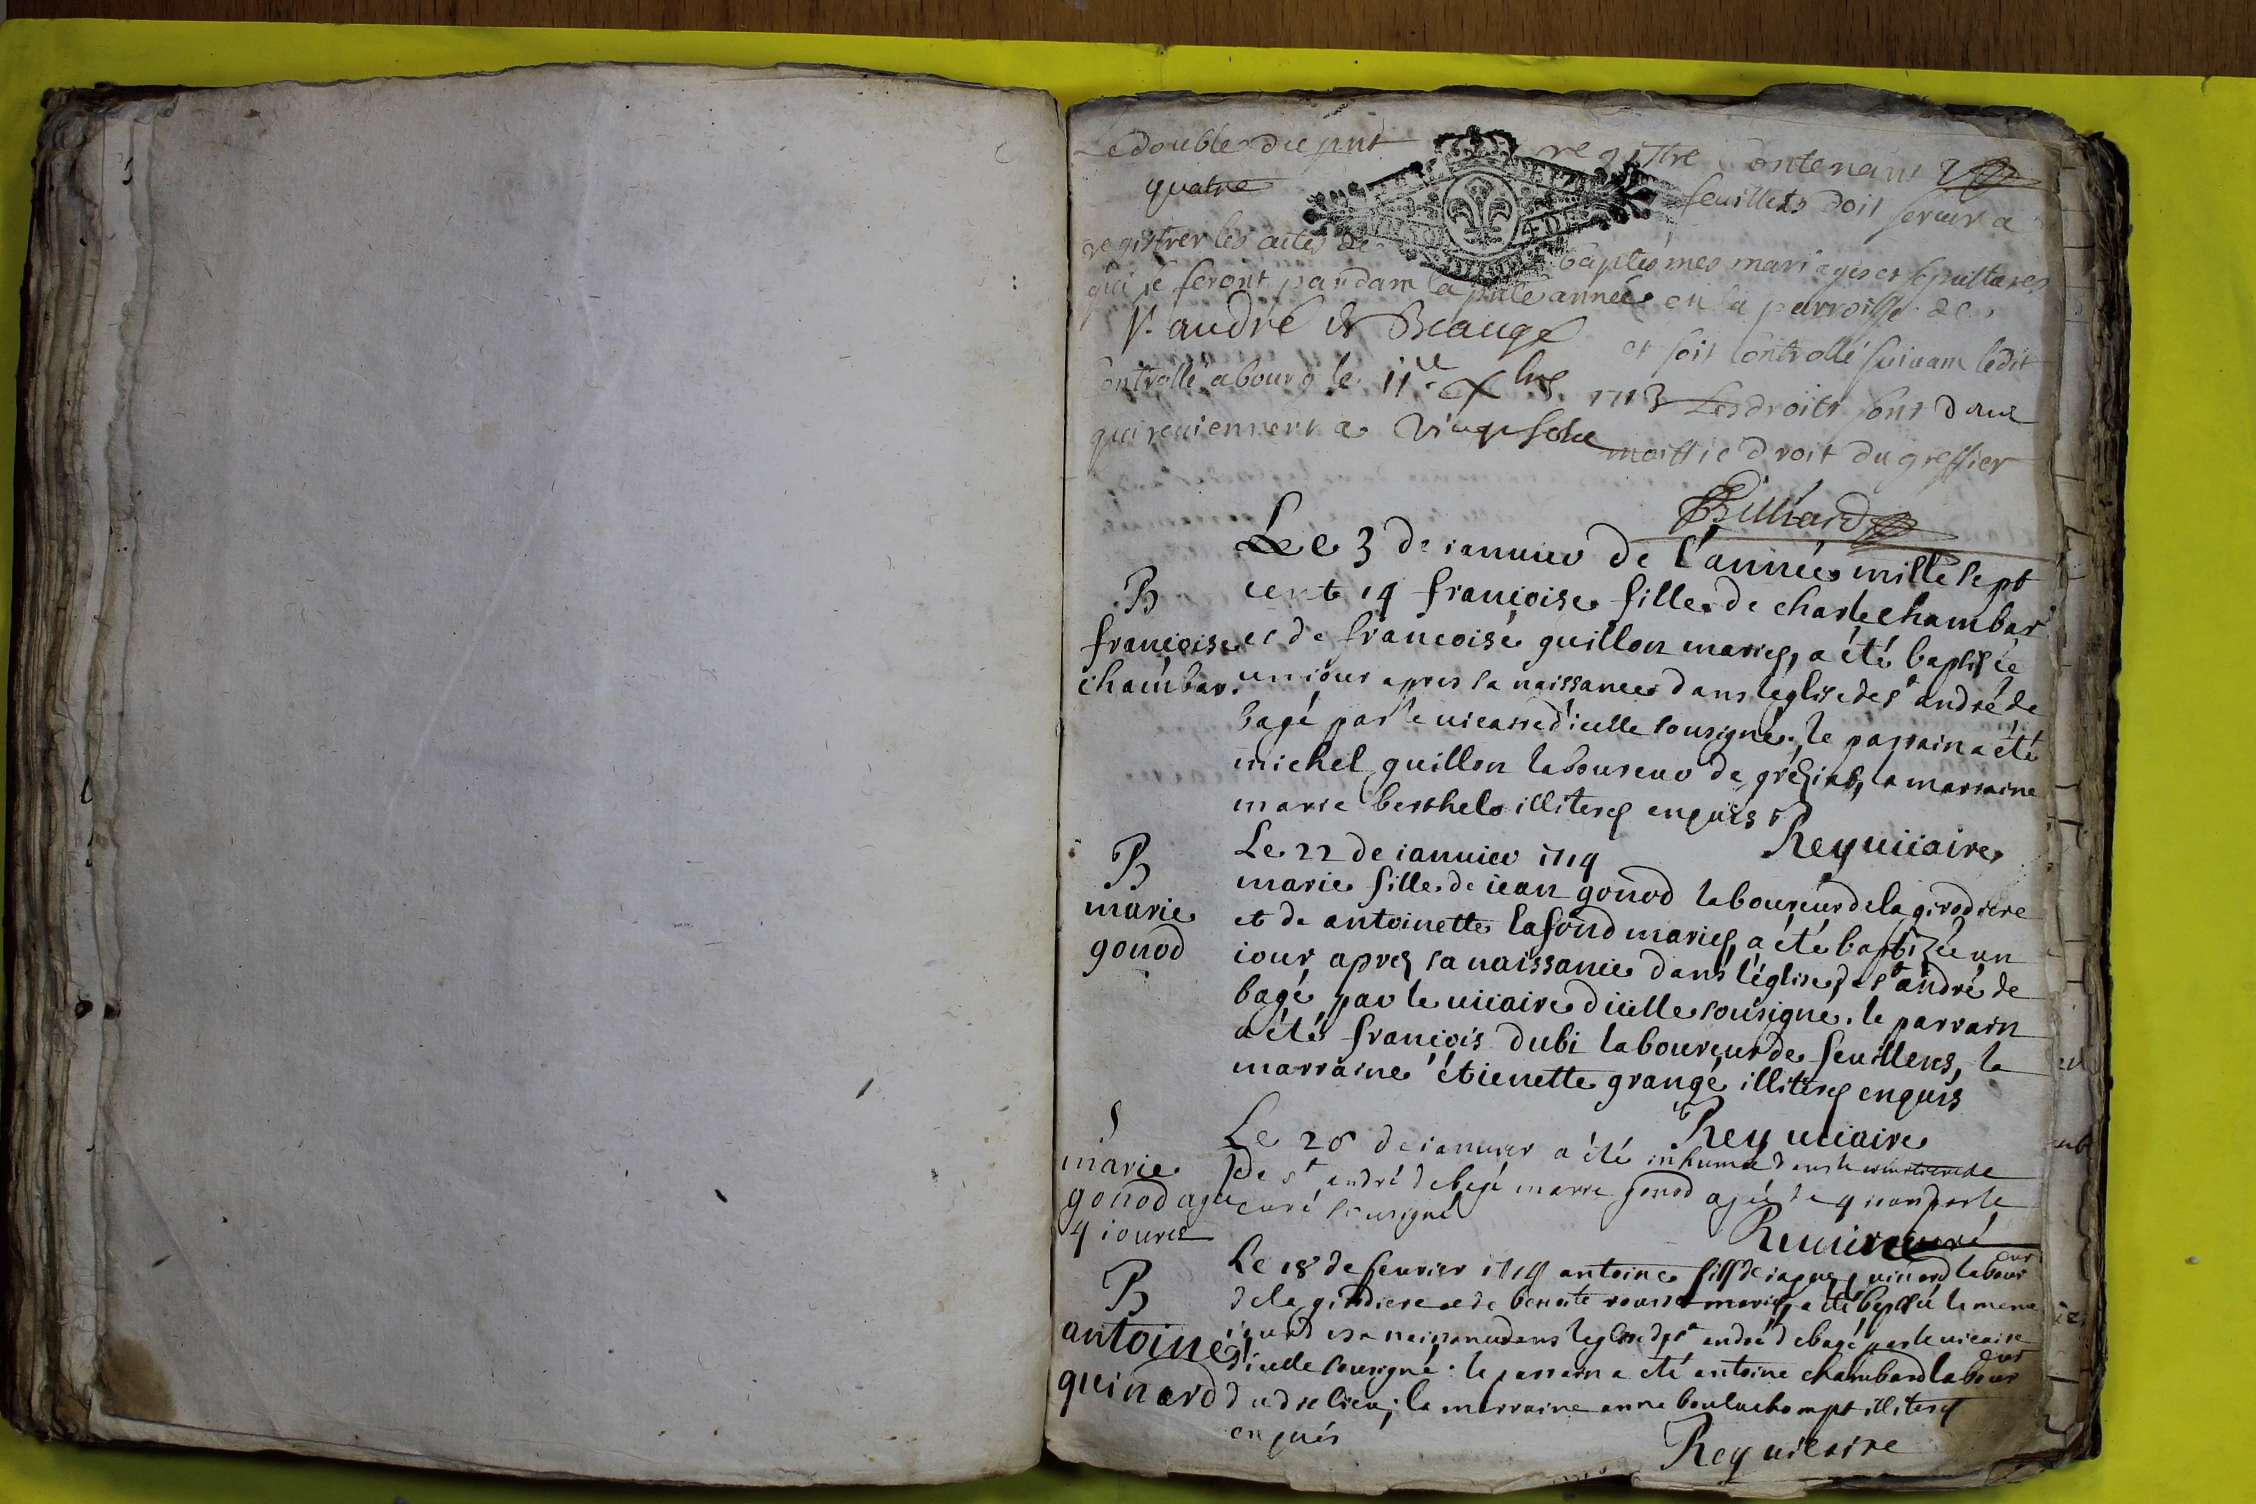 Le double du pnt registre Contenant
quatre feuillets doit servir a
registrer les actes de baptesmes mariages et sepultures
qui se feront pandam la pnte année en la parroisse de
St. andré de Beaugé et soit Controllé suivam lédit
Controllé a bourg le 11e Xbre 1713 Les droits sont deus
qui reviennent a vingt sols moittié droit du greffier
Billiard
Le 3 de ianuier de l'année mille sept
cent 14 françoise fille de charle chambar
et de francoise guillon mariés, a été baptisée
un iour apres sa naissance dans l'église de st andré de
bagé par le vicaire d'icelle sousigné. le parrain a été
michel guillon laboureur de , la marraine
marie berthelo illiterés enquis
Rey vicaire
B
françoise
chambar.
Le 22 de ianuier 1714
marie fille de iean gonod laboureur de la girodiere
et de antoinette lafond mariés, a été baptizée un
iour aprés sa naissance dans l'église de st andré de
bagé par le vicaire d'icelle sousigné. le parrain
a été françois dubi laboureur de feuillens, la
marraine étienette grangé illiterés enquis
Rey vicaire
B
marie
gonod
Le 26 de ianuier a été inhumé dans le cimetiere de
de st andré de bagé marie gonod agée de 4 iours par le
curé sousigné
curé
S
marie
gonod agée
4 iours
Le 18 de feurier 1714 antoine fils de iaque guinard laboureur
de la girodiere et de benoite mariés, a été baptisé le meme
iour de sa naissance dans l'église de st andré de bagé par le vicaire
d'icelle sousigné : le parrain a été antoine chambard laboureur
dudit lieu; la marraine anne illiterés
enquis
Rey vicaire
B
antoine
guinard